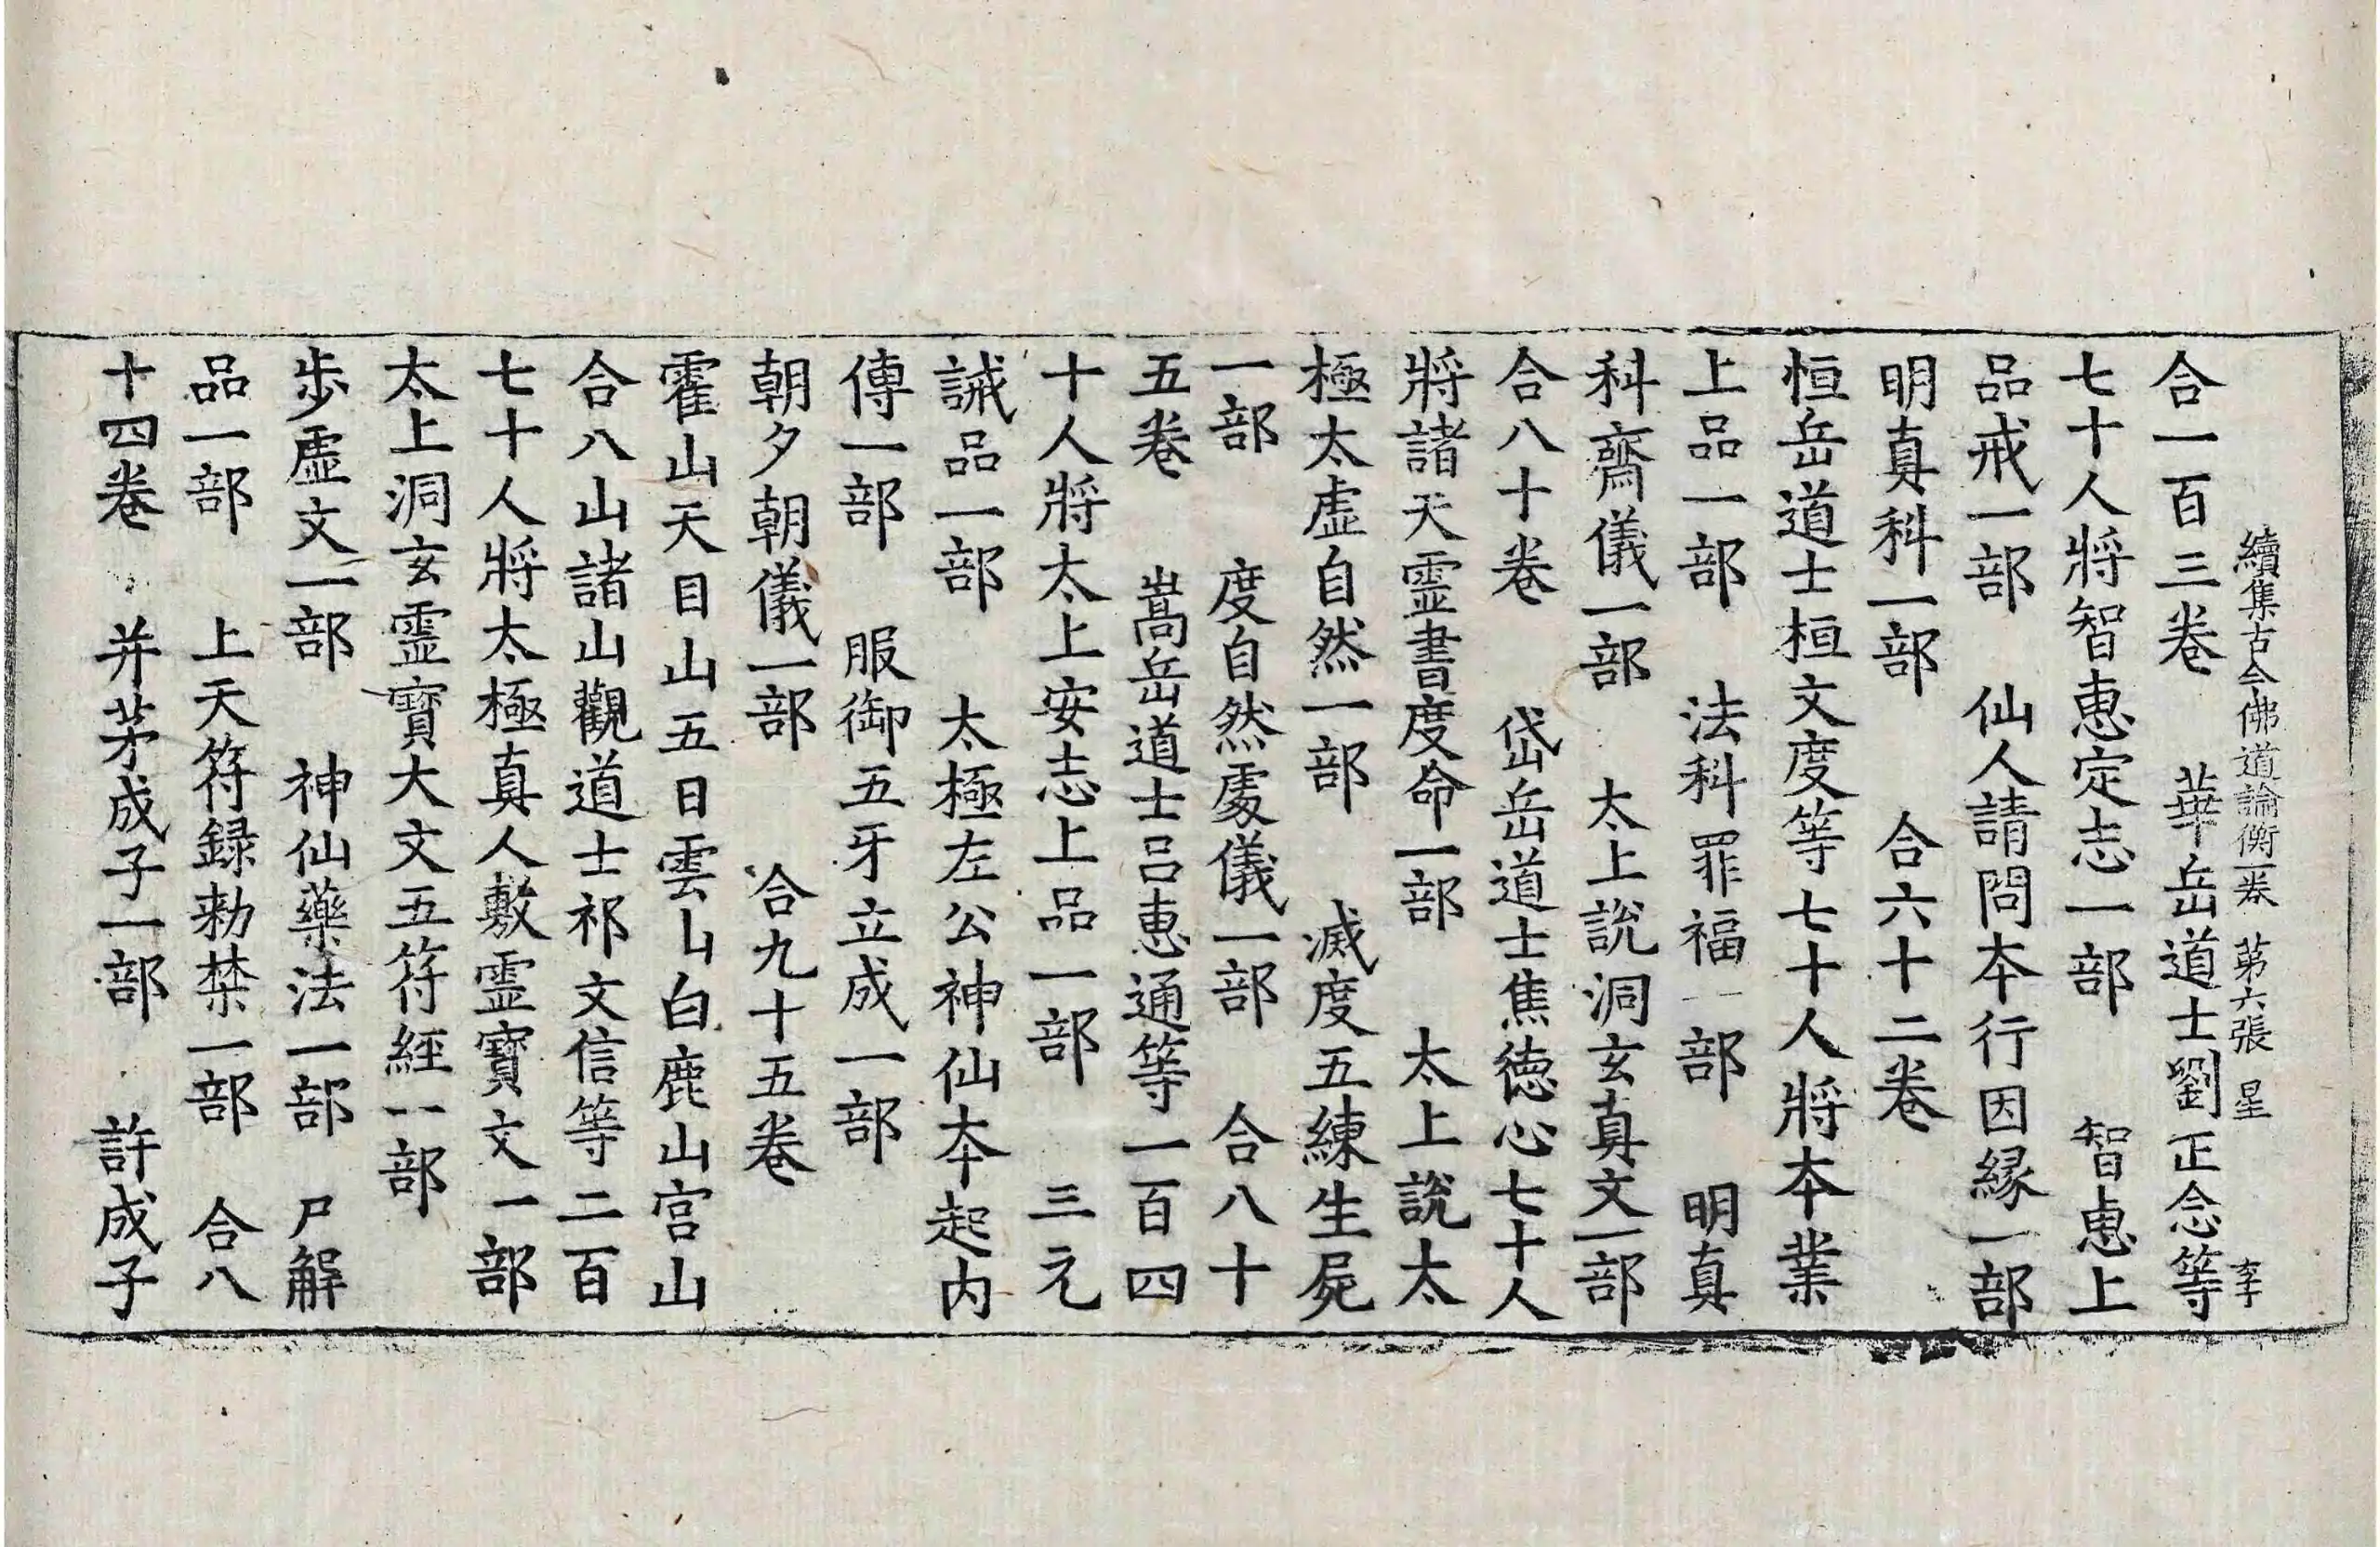 續集古今佛道論衡一卷 第六張 星 李
合一百三卷 華岳道士劉正念等
七十人將智恵定志一部 智恵上
品戒一部 仙人請問本行因縁一部
明真科一部 合六十二卷
恒岳道士桓文度等七十人將本業
上品一部 法科罪福一部 明真
科齋儀一部 太上說洞玄真文一部
合八十卷 岱岳道士焦德心七十人
將諸天霊書度命一部 太上說太
極太虛自然一部 滅度五練生屍
一部 度自然䖏儀一部 合八十
五卷 嵩岳道士呂恵通等一百四
十人將太上安志上品一部 三元
誡品一部 太極左公神仙本起内
傳一部 服御五牙立成一部
朝夕朝儀一部 合九十五卷
霍山天目山五日雲山白鹿山宮山
合八山諸山觀道士祁文信等二百
七十人將太極真人敷霊寶文一部
太上洞玄霊寶大文五符經一部
歩虛文一部 神仙藥法一部 尸解
品一部 上天符録勑禁一部 合八
十四卷 并茅成子一部 許成子